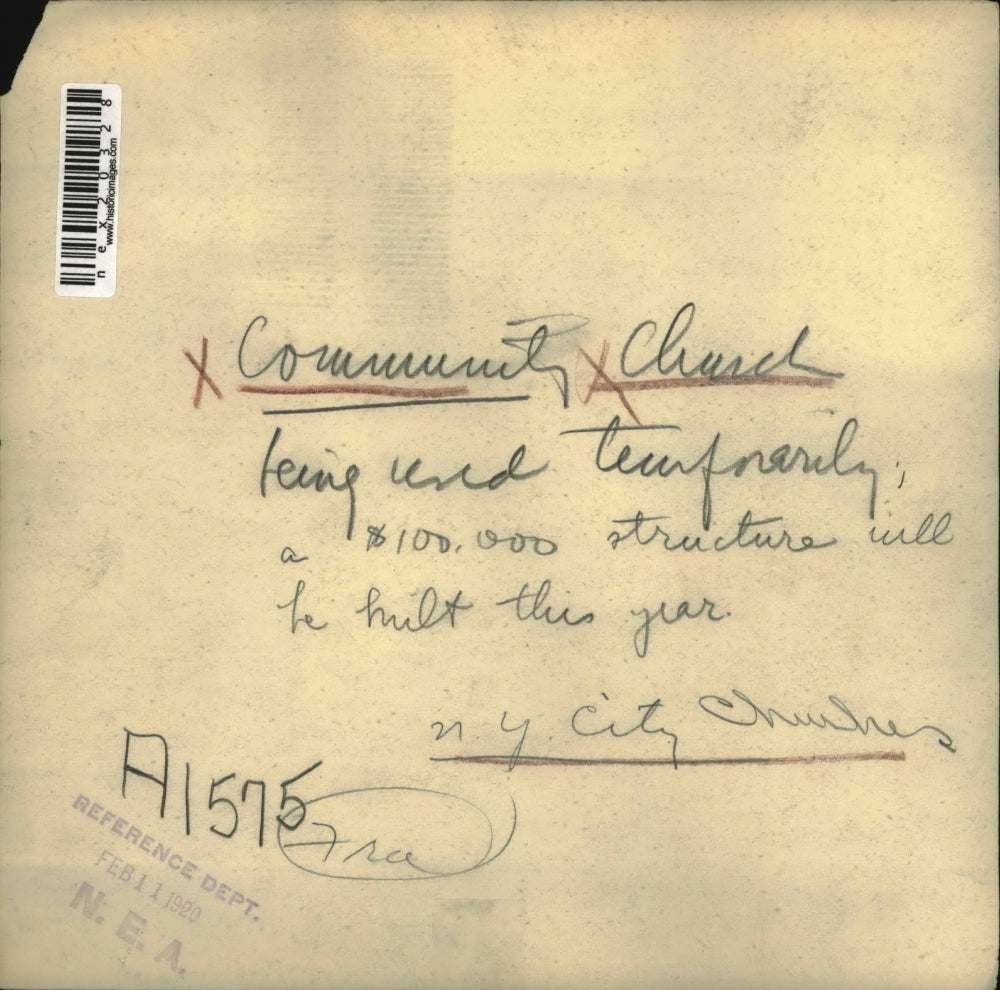 nex20328
www.historicimages.com
X Community X Church
being used temporarily;
a $100,000 structure will
be built this year.
N Y. City Churches
A1575
REFERENCE DEPT.
FEB 11 1920
N. E. A.